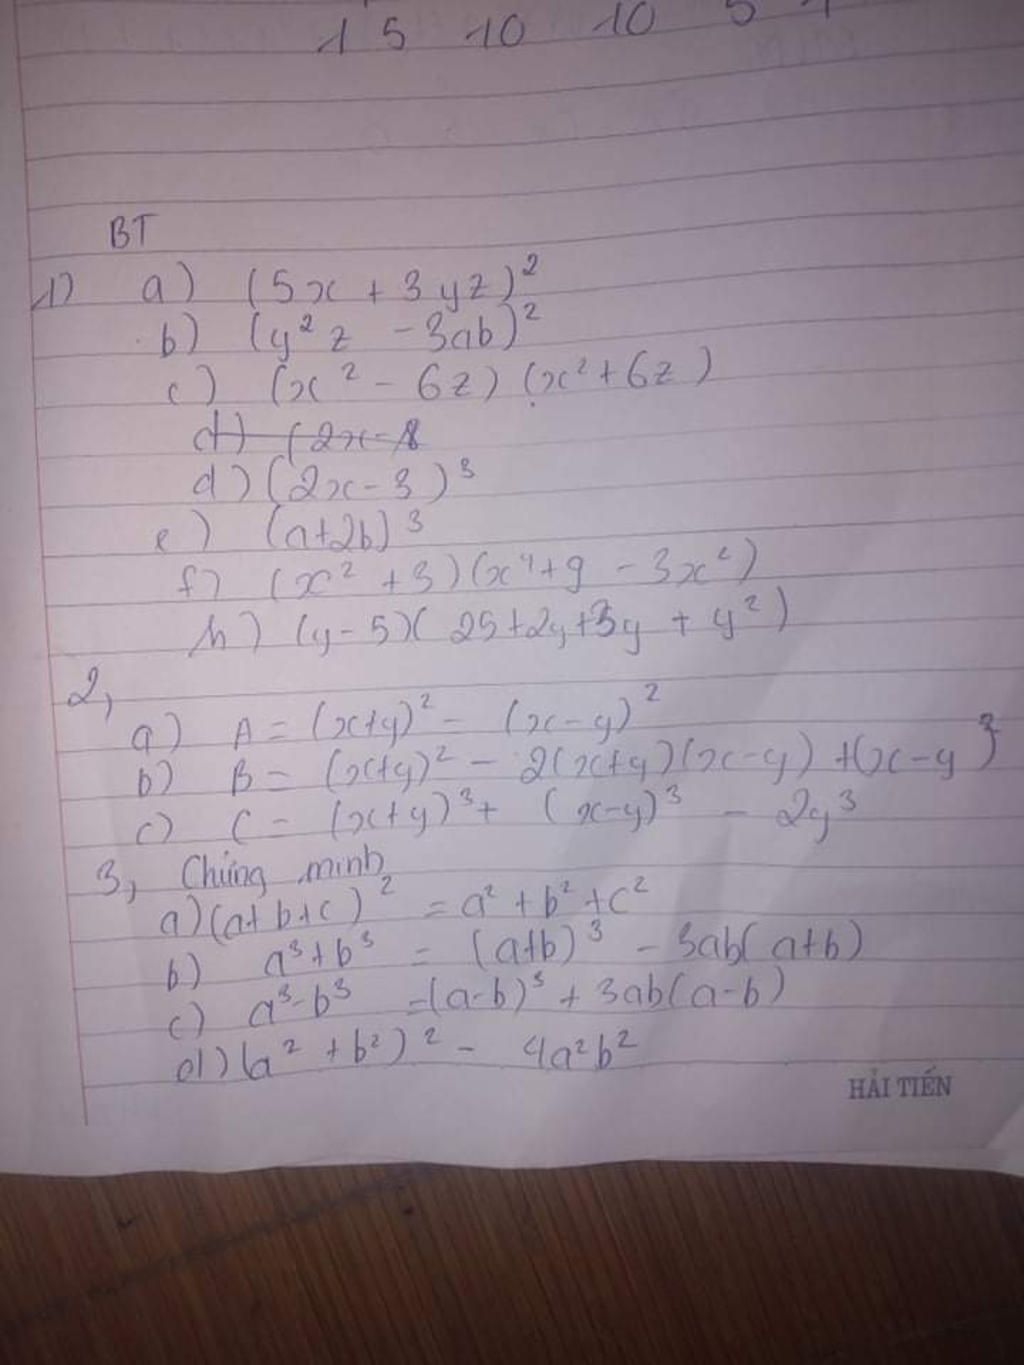 1 5 10 10 5 1
BT
1) a) (5x + 3yz)²
b) (y²z - 3ab)²
c) (x² - 6z) (x² + 6z)
d) (2x - 1
d) (2x - 3)³
e) (a+2b)³
f) (x² + 3)(x⁴ + 9 - 3x²)
h) (y - 5)(25 + 2y + 3y + y²)
2,
a) A = (x+y)² - (x-y)²
b) B = (x+y)² - 2(x+y)(x-y) + (x-y)²
c) C = (x+y)³ + (x-y)³ - 2y³
3, Chứng minh
a) (a+b+c)² = a² + b² + c²
b) a³ + b³ = (a+b)³ - 3ab(a+b)
c) a³ - b³ = (a-b)³ + 3ab(a-b)
d) (a² + b²)² - 4a²b²
HẢI TIẾN